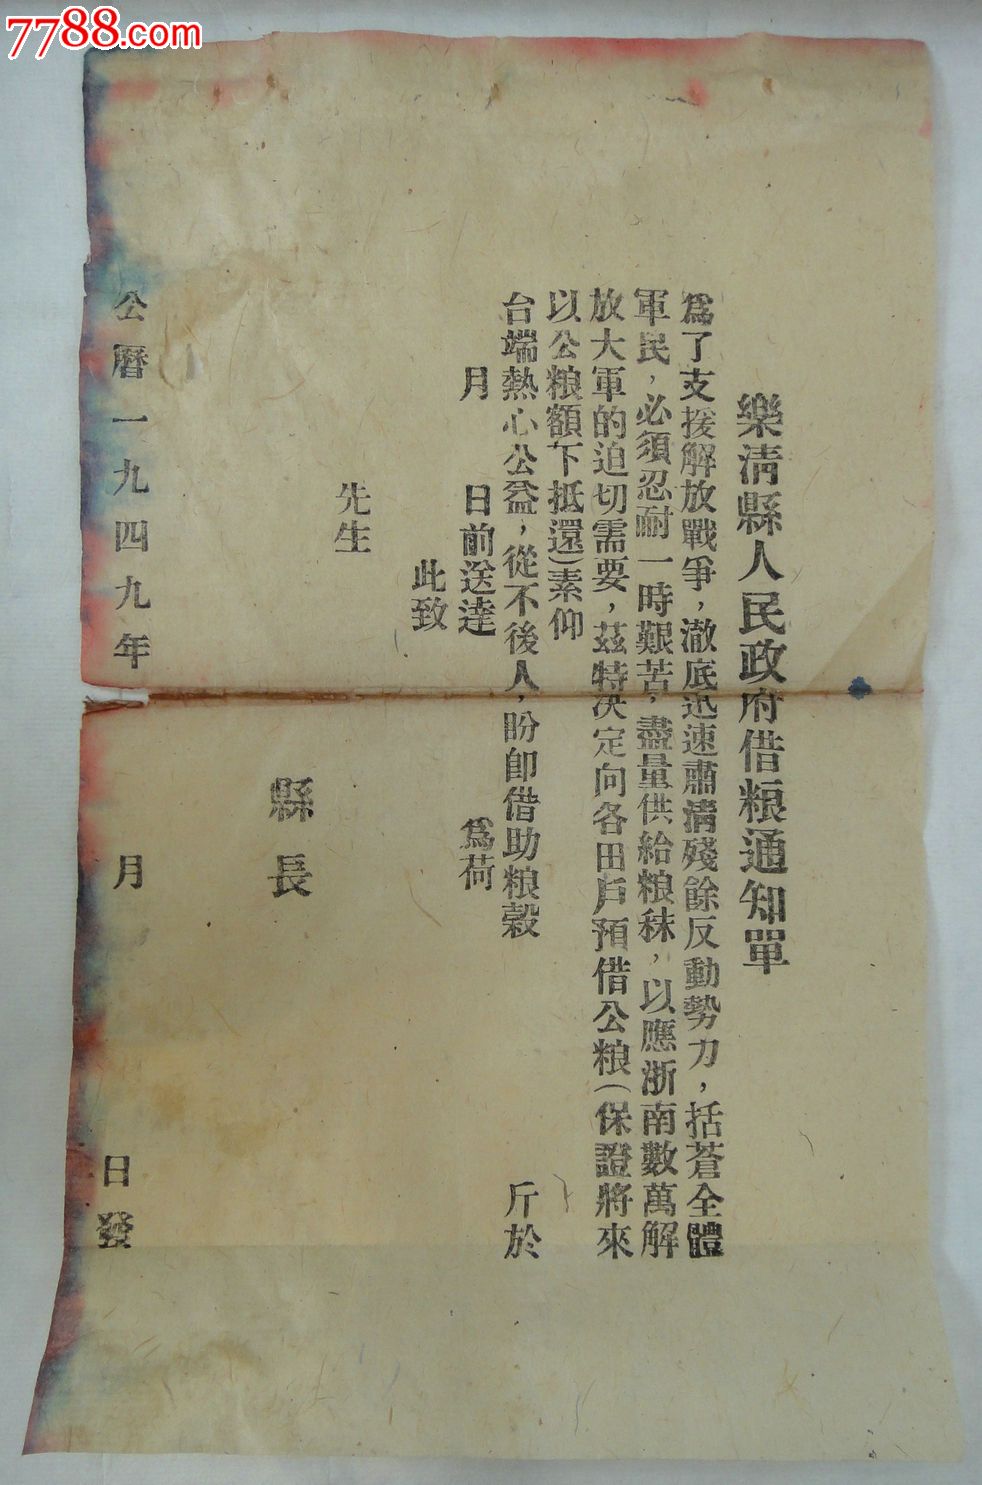 7788.com
樂清縣人民政府借粮通知單
爲了支援解放戰爭，澈底迅速肅清殘餘反動勢力，括蒼全體
軍民，必須忍耐一時艱苦，盡量供給粮秣，以應浙南數萬解
放大軍的迫切需要，茲特决定向各田戶預借公粮（保證將來
以公粮額下抵還）素仰
台端熱心公益，從不後人，盼卽借助粮穀 斤於
月 日前送達 爲荷
此致
先生
縣長
公曆一九四九年 月 日發